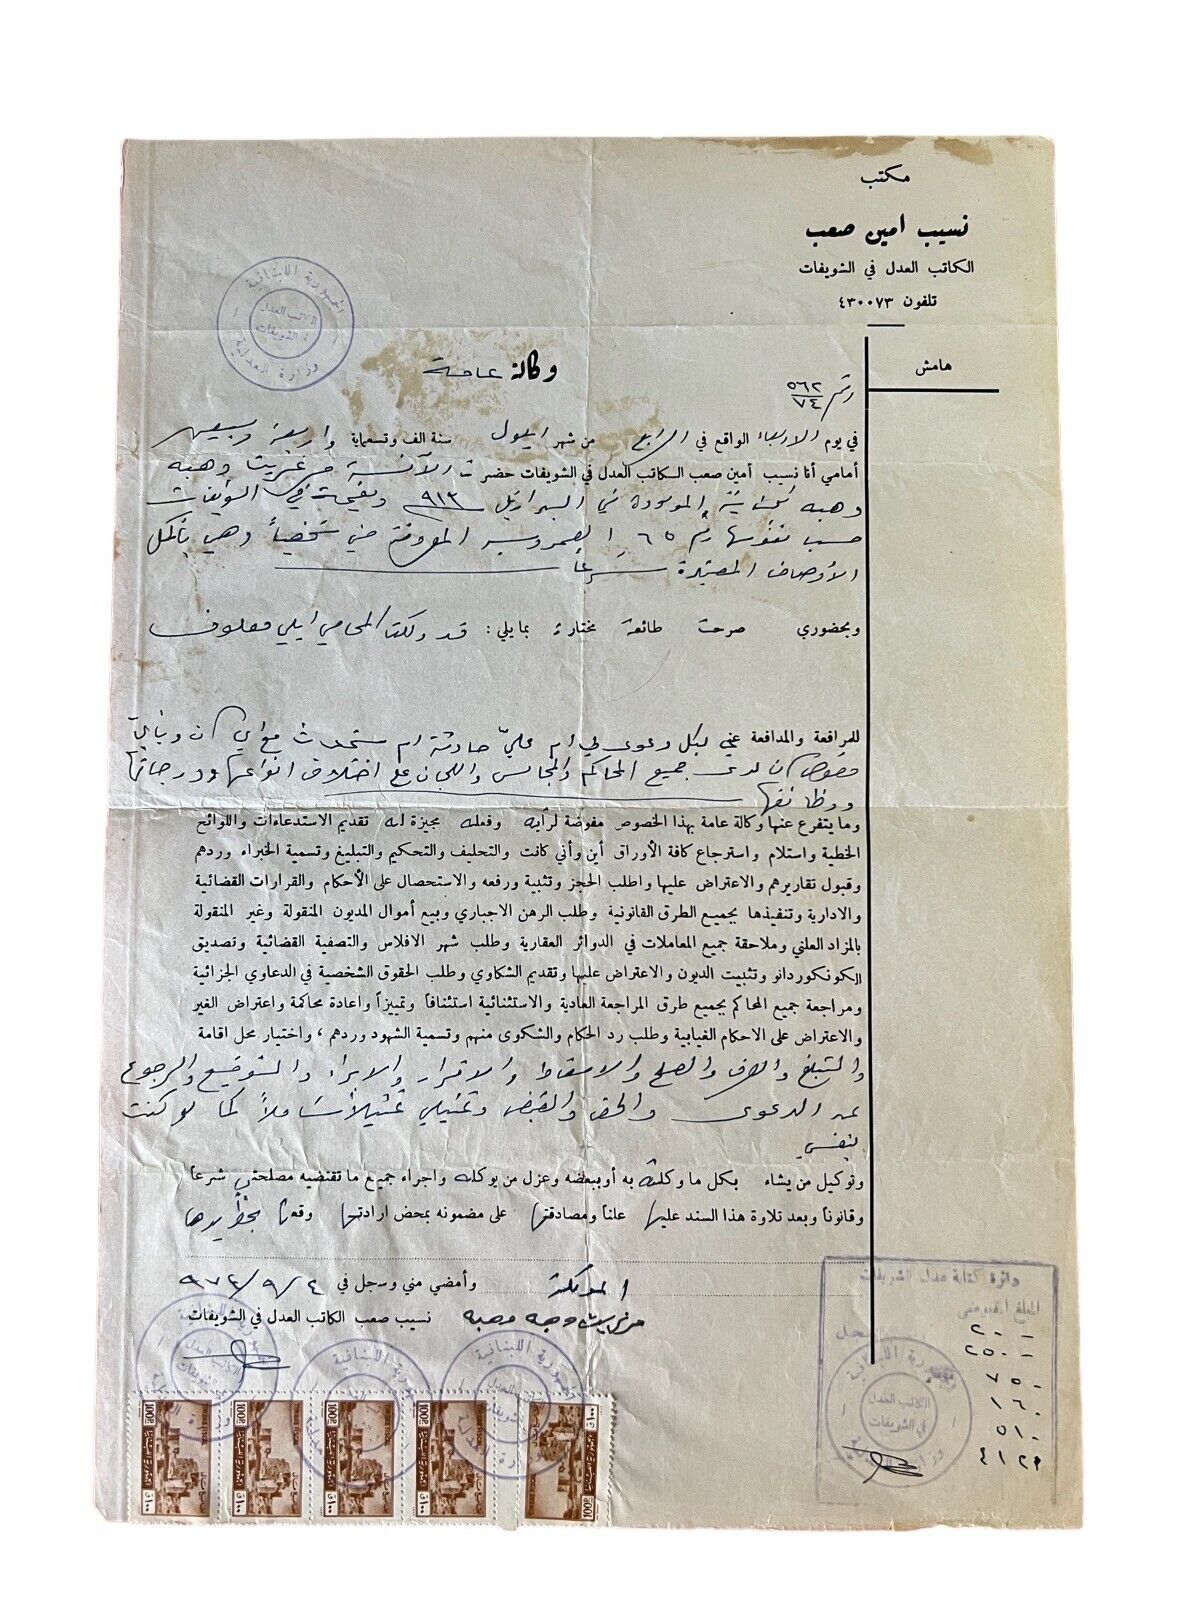 مكتب
نسيب امين صعب
الكاتب العدل في الشويفات
تلفون ٤٣٠٠٧٣
هامش
الجمهورية اللبنانية
وزارة العدلية
الكاتب العدل
في الشويفات
وكالة عامة
رقم ٥٦٢/٧٤
في يوم الاربعاء الواقع في الرابع من شهر ايلول سنة الف وتسعماية واربعة وسبعين
أمامي أنا نسيب أمين صعب الكاتب العدل في الشويفات حضرت الآنسة مرغريت وهبه
وهبه لبنانية المولودة في البرازيل ٩١٣ وتقيم في الشويفات
حسب نفوسها رقم ٦٥ المعروفة مني شخصياً وهي بأكمل
الأوصاف المعتبرة شرعاً
وبحضوري صرحت طائعة مختارة بمايلي: قد وكلت المحامي ايلي معلوف
للمرافعة والمدافعة عني بكل دعوى لي ام عليّ حادثة ام ستحدث مع اي كان وباي
خصوص كان لدى جميع المحاكم والمجالس واللجان على اختلاف انواعها ودرجاتها
ووظائفها
وما يتفرع عنها وكالة عامة بهذا الخصوص مفوضة لرأيه وفعله مجيزة له تقديم الاستدعاءات واللوائح
الخطية واستلام واسترجاع كافة الأوراق أين وأني كانت والتحليف والتحكيم والتبليغ وتسمية الخبراء وردهم
وقبول تقاريرهم والاعتراض عليها واطلب الحجز وتثبية ورفعه والاستحصال على الأحكام والقرارات القضائية
والادارية وتنفيذها بجميع الطرق القانونية وطلب الرهن الاجباري وبيع أموال المديون المنقولة وغير المنقولة
بالمزاد العلني وملاحقة جميع المعاملات في الدوائر العقارية وطلب شهر الافلاس والتصفية القضائية وتصديق
الكونكوردانو وتثبيت الديون والاعتراض عليها وتقديم الشكاوي وطلب الحقوق الشخصية في الدعاوي الجزائية
ومراجعة جميع المحاكم بجميع طرق المراجعة العادية والاستثنائية استئنافاً وتمييزاً واعادة محاكمة واعتراض الغير
والاعتراض على الاحكام الغيابية وطلب رد الحكام والشكوى منهم وتسمية الشهود وردهم، واختيار محل اقامة
والتبلغ والصرف والصلح والاسقاط والاقرار والابراء والتوقيع والرجوع
عن الدعوى والحق والقبض وتمثيلي تمثيلاً شاملاً كما لو كنت
بنفسي
وتوكيل من يشاء بكل ما وكلته به أو ببعضه وعزل من يوكله واجراء جميع ما تقتضيه مصلحتي شرعاً
وقانوناً وبعد تلاوة هذا السند عليها علناً ومصادقتها على مضمونه بمحض ارادتها وقعتها بخط يدها
الموكلة وأمضي مني وسجل في ٤/٩/٩٧٤
مرغريت وهبه وهبه نسيب صعب الكاتب العدل في الشويفات
دائرة كتابة عدل الشويفات
٢٠٠
٢٥٠
٧٥٠
١٦٠
٥١٠
الجمهورية اللبنانية
وزارة العدلية
الكاتب العدل
في الشويفات
100P
١٠٠ق